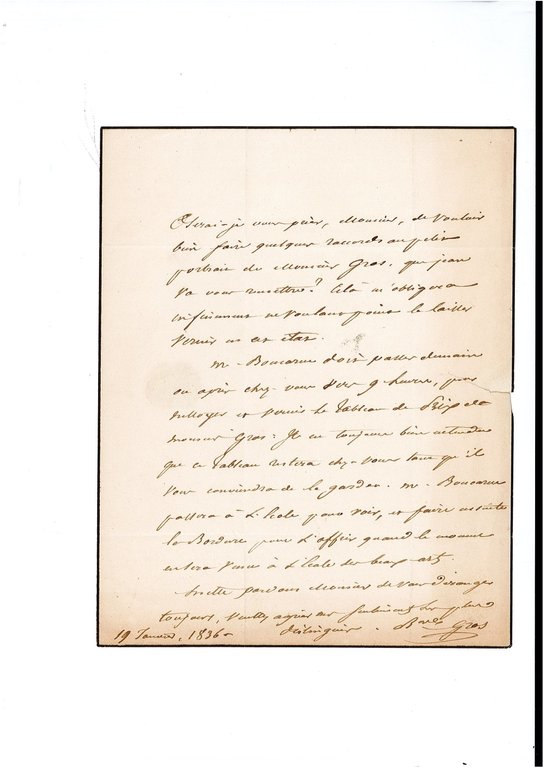 Oserai-je vous prier, Monsieur, de vouloir
bien faire quelques raccords au petit
portrait de Monsieur Gros. que jean
va vous remettre? Celà m'obligera
infiniment ne voulant point le laisser
vernir en cet état.
M. Boucarne doit passer demain
ou après chez vous vers 9 heures, pour
nettoyer et vernir le Tableau de
monsieur Gros: Il en toujours bien entendu
que ce Tableau restera chez vous tant qu'il
vous conviendra de le garder. M. Boucarne
passera à L'école pour voir, et faire
la Bordure pour L'offrir quand le moment
sera venu à L'école des beaux-arts.
Mille pardons Monsieur de vous déranger
toujours, Veuillez agréer mes sentiments les plus
distingués. Bne Gros
19 Janvier, 1836.